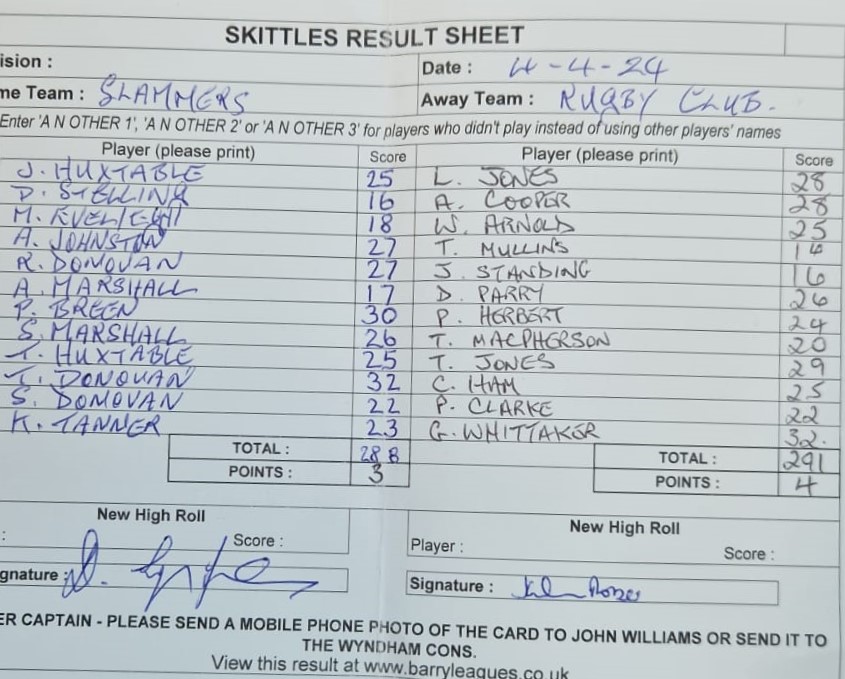 SKITTLES RESULT SHEET
ision : Date : 4-4-24
me Team : SLAMMERS Away Team : RUGBY CLUB.
Enter 'A N OTHER 1', 'A N OTHER 2' or 'A N OTHER 3' for players who didn't play instead of using other players' names
Player (please print) Score Player (please print) Score
J. HUXTABLE 25 L. JONES 28
D. STELLING 16 A. COOPER 28
M. EVELEIGH 18 W. ARNOLD 25
A. JOHNSTON 27 T. MULLINS 14
R. DONOVAN 27 J. STANDING 16
A. MARSHALL 17 D. PARRY 26
P. BREEN 30 P. HERBERT 24
S. MARSHALL 26 T. MACPHERSON 20
T. HUXTABLE 25 T. JONES 29
T. DONOVAN 32 C. HAM 25
S. DONOVAN 22 P. CLARKE 22
K. TANNER 23 G. WHITTAKER 32.
TOTAL : 288 TOTAL : 291
POINTS : 3 POINTS : 4
New High Roll New High Roll
: Score : Player : Score :
gnature : Signature :
ER CAPTAIN - PLEASE SEND A MOBILE PHONE PHOTO OF THE CARD TO JOHN WILLIAMS OR SEND IT TO
THE WYNDHAM CONS.
View this result at www.barryleagues.co.uk